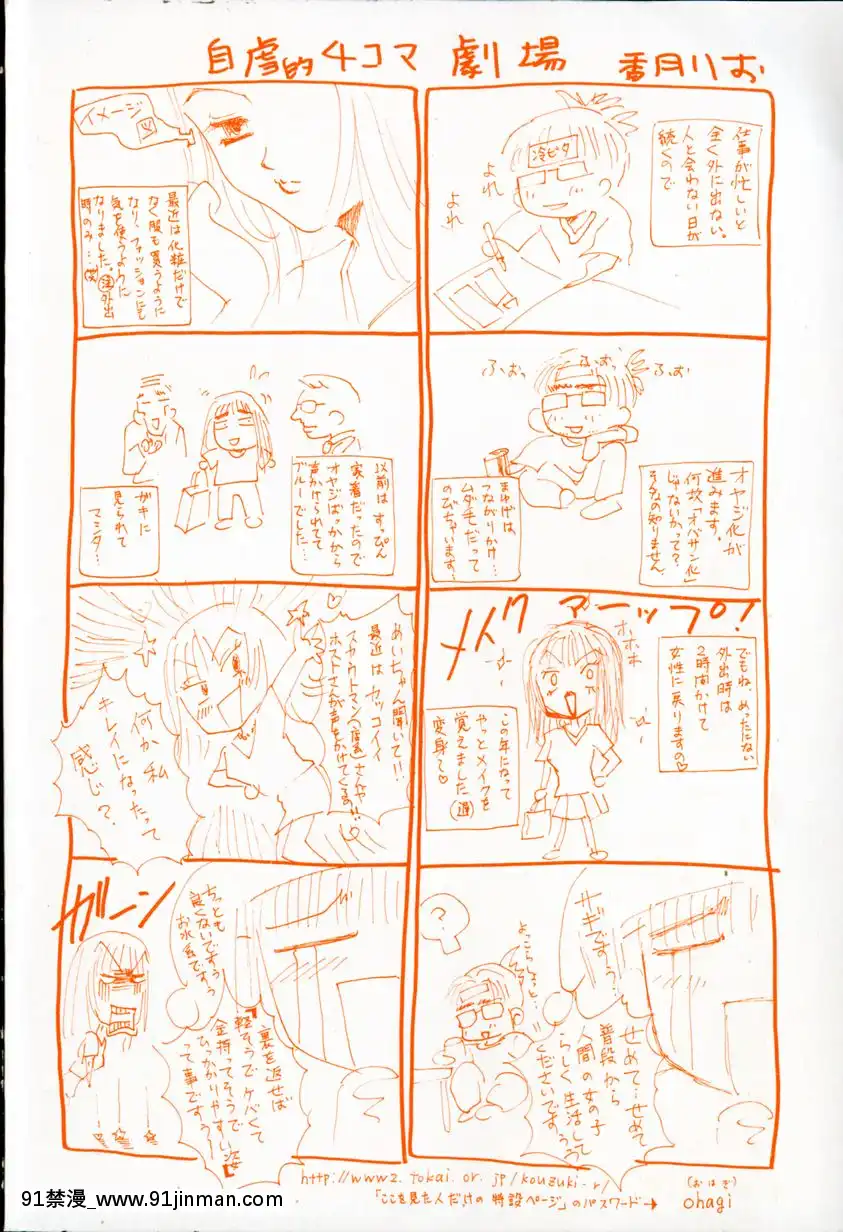 自虐的4コマ劇場 香月りお
仕事が忙しいと
全く外に出ない。
人と会わない日が
続くので
冷ピタ
よれ
よれ
オヤジ化が
進みます。
何故「オバサン化」
じゃないかって?
そんなの知りません。
ふおっ
ふおっ
ふぉ
まゆげは、
つながりかけ…
ムダ毛だって
のびちゃいます…
メイクアーップ!
でもね、めったにない
外出時は
2時間かけて
女性に戻りますの♡
オホホ
この年になって
やっとメイクを
覚えました(遅)
変身〜♡
サギですぅ…
せめて…せめて
普段から
人間の女の子
らしく生活して
くださいですぅぅ
よっこらしょっと…
?
イメージ
図
最近は化粧だけで
なく服も買うように
なり、ファッションにも
気を使うように
なりました。(注)外出
時のみ…(笑)
以前はすっぴん
家着だったので
オヤジばっかから
声かけられてて
ブルーでした…
ガキに
見られて
マシタ…
めいちゃん聞いて!!
最近はカッコイイ
スカウトマン(風)さんや
ホストさんが声をかけてくる!!♡
何か私
キレイになったって
感じ?
ガーン
ちっとも
良くないですぅ
お水系ですぅ
裏を返せば
『軽そうでケバくて
金持ってそうで
ひっかかりやすい姿』
って事ですぅ〜
http://www2.tokai.or.jp/kouzuki-r/
「ここを見た人だけの特設ページ」のパスワード→
(おはぎ)
ohagi
91禁漫_www.91jinman.com